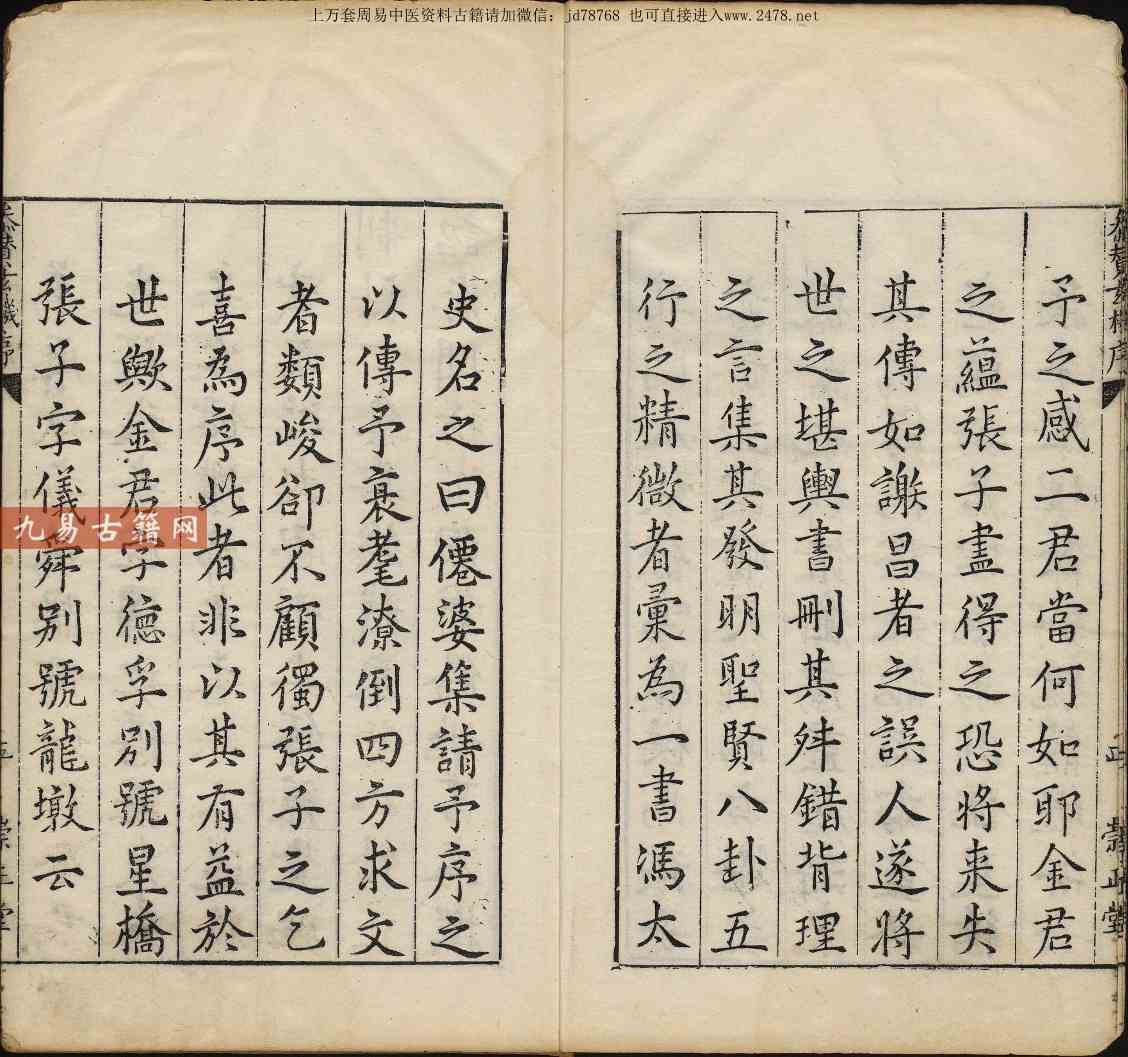 上万套周易中医资料古籍请加微信：jd78768 也可直接进入www.2478.net
予之感二君當何如耶金君
之蘊張子盡得之恐將来失
其傳如謝昌者之誤人遂將
世之堪輿書刪其舛錯背理
之言集其發明聖賢八卦五
行之精微者彙為一書馮太
史名之曰僊婆集請予序之
以傳予衰耄潦倒四方求文
者類峻卻不顧獨張子之乞
喜為序此者非以其有益於
世歟金君字德孚別號星橋
張子字儀舜別號龍墩云
九易古籍网